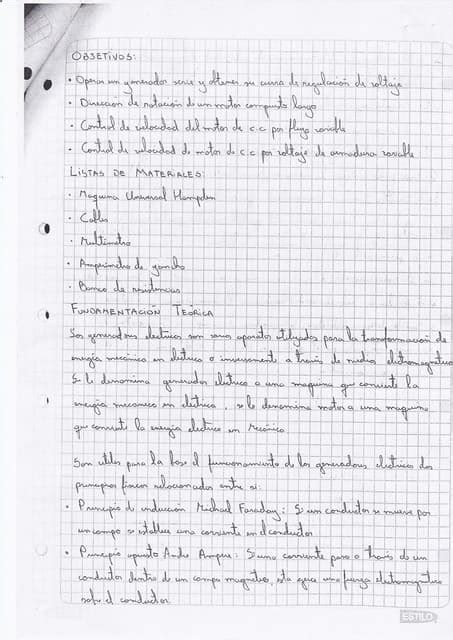 OBJETIVOS:
• Operar un generador serie y obtener su curva de regulación de voltaje
• Direccion de rotación de un motor compuesto largo
• Control de velocidad del motor de c.c por flujo variable
• Control de velocidad de motor de c.c por voltaje de armadura variable
LISTAS DE MATERIALES:
• Maquina Universal Hampden
• Cables
• Multímetro
• Amperimetro de gancho
• Banco de resistencias
FUNDAMENTACIÓN TEÓRICA
Los generadores electricos son unos aparatos utilizados para la transformación de
energía mecánica en eléctrica o inversamente a través de medios electromagnéticos
Se le denomina generador eléctrico a una maquina que convierte la
energía mecanica en eléctrica, se le denomina motor a una maquina
que convierte la energia electrica en Mecánica
Son utiles para la base el funcionamiento de los generadores electricos dos
principios fisicos relacionados entre si:
• Principio de inducción Michael Faraday: Si un conductor se mueve por
un campo se establece una corriente en el conductor
• Principio opuesto Andre Ampere: Si una corriente pasa a través de un
conductor dentro de un campo magnético, esta ejerce una fuerza electromagnetica
sobre el conductor.
ESTILO